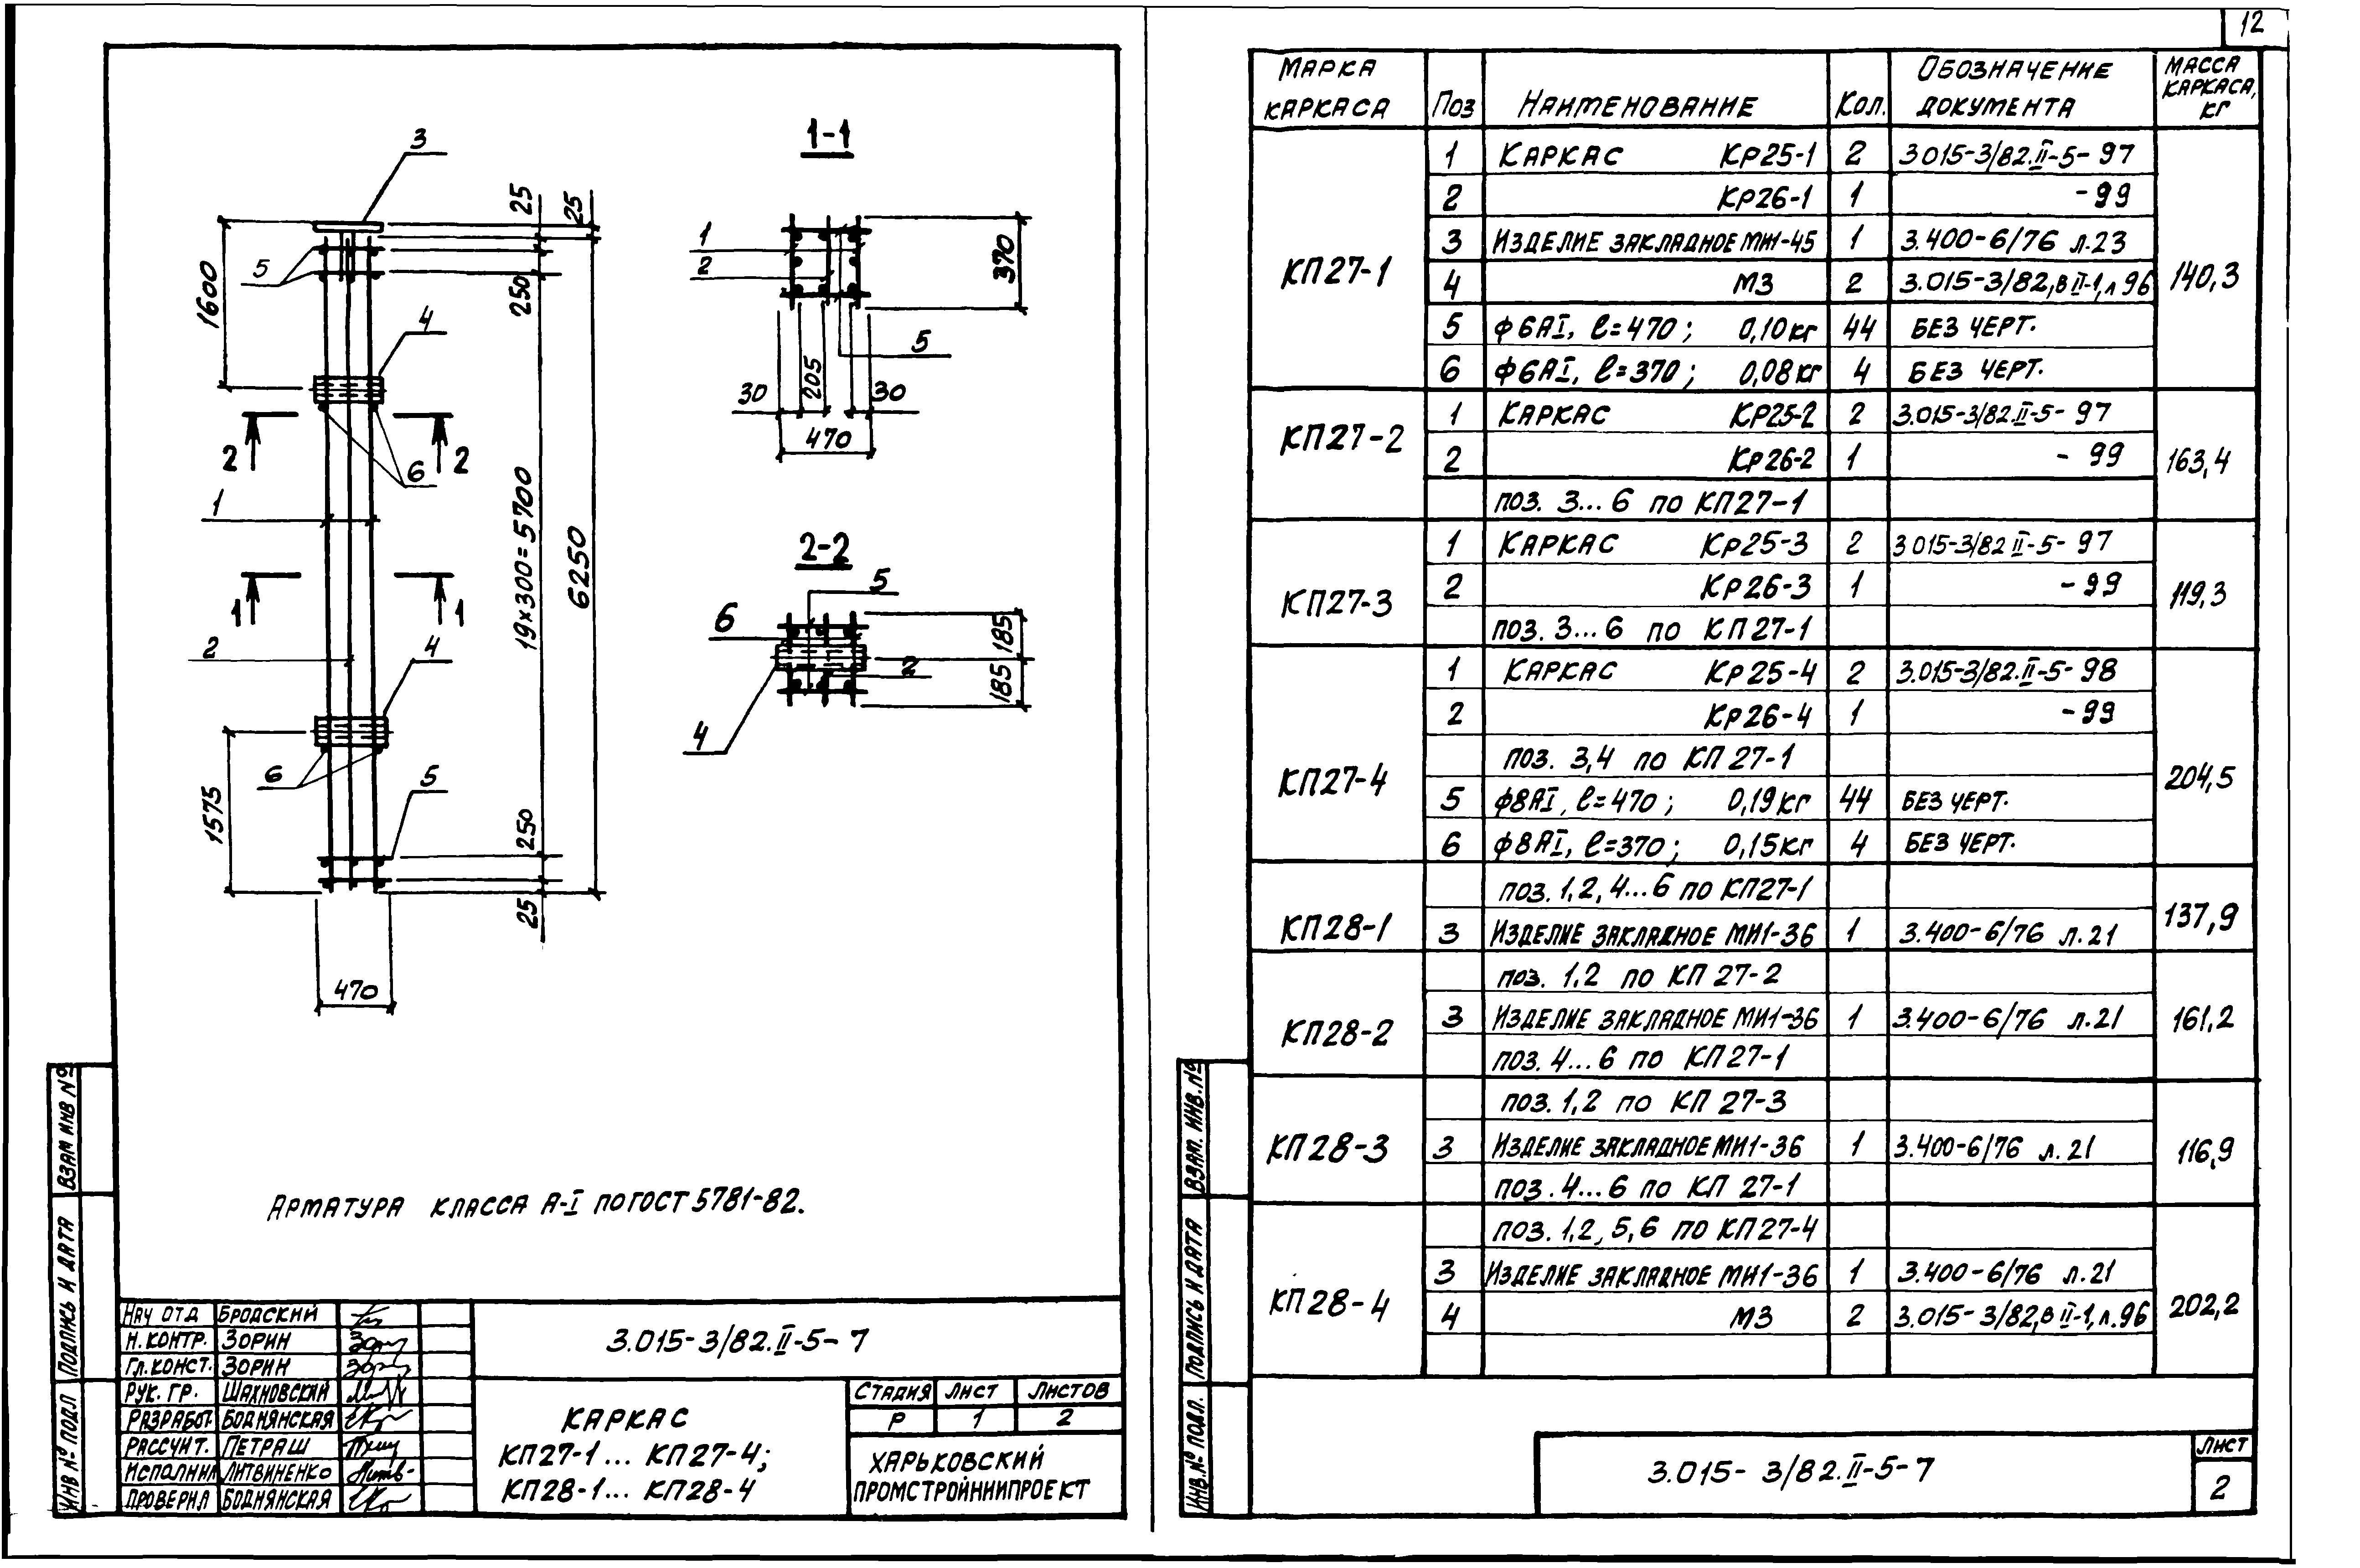 12
3
25
25
1600
5
250
4
2
2
6
1
19×300=5700
6250
1
1
2
4
6
5
1575
250
25
470
1-1
1
2
370
5
30
205
30
470
2-2
5
6
185
2
185
4
АРМАТУРА КЛАССА А-I ПО ГОСТ 5781-82.
ВЗАМ ИНВ №
ПОДПИСЬ И ДАТА
ИНВ № ПОДЛ
НАЧ ОТД БРОДСКИЙ
Н.КОНТР. ЗОРИН
ГЛ.КОНСТ. ЗОРИН
РУК. ГР. ШАХНОВСКИЙ
РАЗРАБОТ. БОДНЯНСКАЯ
РАССЧИТ. ПЕТРАШ
ИСПОЛНИЛ ЛИТВИНЕНКО
ПРОВЕРИЛ БОДНЯНСКАЯ
3.015-3/82.II-5-7
КАРКАС
КП27-1... КП27-4;
КП28-1... КП28-4
СТАДИЯ ЛИСТ ЛИСТОВ
Р 1 2
ХАРЬКОВСКИЙ
ПРОМСТРОЙНИИПРОЕКТ
МАРКА КАРКАСА ПОЗ НАИМЕНОВАНИЕ КОЛ. ОБОЗНАЧЕНИЕ ДОКУМЕНТА МАССА КАРКАСА, КГ
КП27-1 140,3
1 КАРКАС КР25-1 2 3.015-3/82.II-5-97
2 КР26-1 1 -99
3 ИЗДЕЛИЕ ЗАКЛАДНОЕ МИ1-45 1 3.400-6/76 л.23
4 М3 2 3.015-3/82,в II-1,л 96
5 ф6АI, ℓ=470; 0,10кг 44 БЕЗ ЧЕРТ.
6 ф6АI, ℓ=370; 0,08кг 4 БЕЗ ЧЕРТ.
КП27-2 163,4
1 КАРКАС КР25-2 2 3.015-3/82.II-5-97
2 КР26-2 1 -99
поз. 3...6 по КП27-1
КП27-3 119,3
1 КАРКАС КР25-3 2 3 015-3/82 II-5-97
2 КР26-3 1 -99
поз. 3...6 по КП27-1
КП27-4 204,5
1 КАРКАС КР25-4 2 3.015-3/82.II-5-98
2 КР26-4 1 -99
поз. 3,4 по КП 27-1
5 ф8АI, ℓ=470; 0,19кг 44 БЕЗ ЧЕРТ.
6 ф8АI, ℓ=370; 0,15кг 4 БЕЗ ЧЕРТ.
КП28-1 137,9
поз. 1,2,4...6 по КП27-1
3 ИЗДЕЛИЕ ЗАКЛАДНОЕ МИ1-36 1 3.400-6/76 л.21
КП28-2 161,2
поз. 1,2 по КП 27-2
3 ИЗДЕЛИЕ ЗАКЛАДНОЕ МИ1-36 1 3.400-6/76 л.21
поз. 4...6 по КП27-1
КП28-3 116,9
поз. 1,2 по КП 27-3
3 ИЗДЕЛИЕ ЗАКЛАДНОЕ МИ1-36 1 3.400-6/76 л.21
поз. 4...6 по КП 27-1
КП28-4 202,2
поз. 1,2,5,6 по КП27-4
3 ИЗДЕЛИЕ ЗАКЛАДНОЕ МИ1-36 1 3.400-6/76 л.21
4 М3 2 3.015-3/82,в II-1,л.96
ВЗАМ. ИНВ.№
ПОДПИСЬ И ДАТА
ИНВ.№ ПОДЛ.
3.015-3/82.II-5-7
ЛИСТ
2